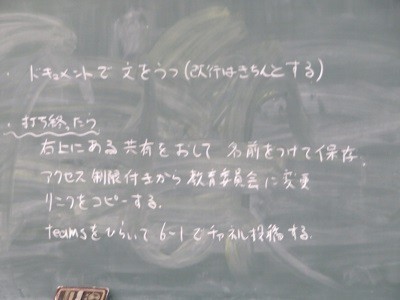 ・ドキュメントで文をうつ(改行はきちんとする)
・打ち終ったら
右上にある共有をおして 名前をつけて保存.
アクセス制限付きから教育委員会に変更
リンクをコピーする.
teamsをひらいて 6-1でチャネル投稿する.